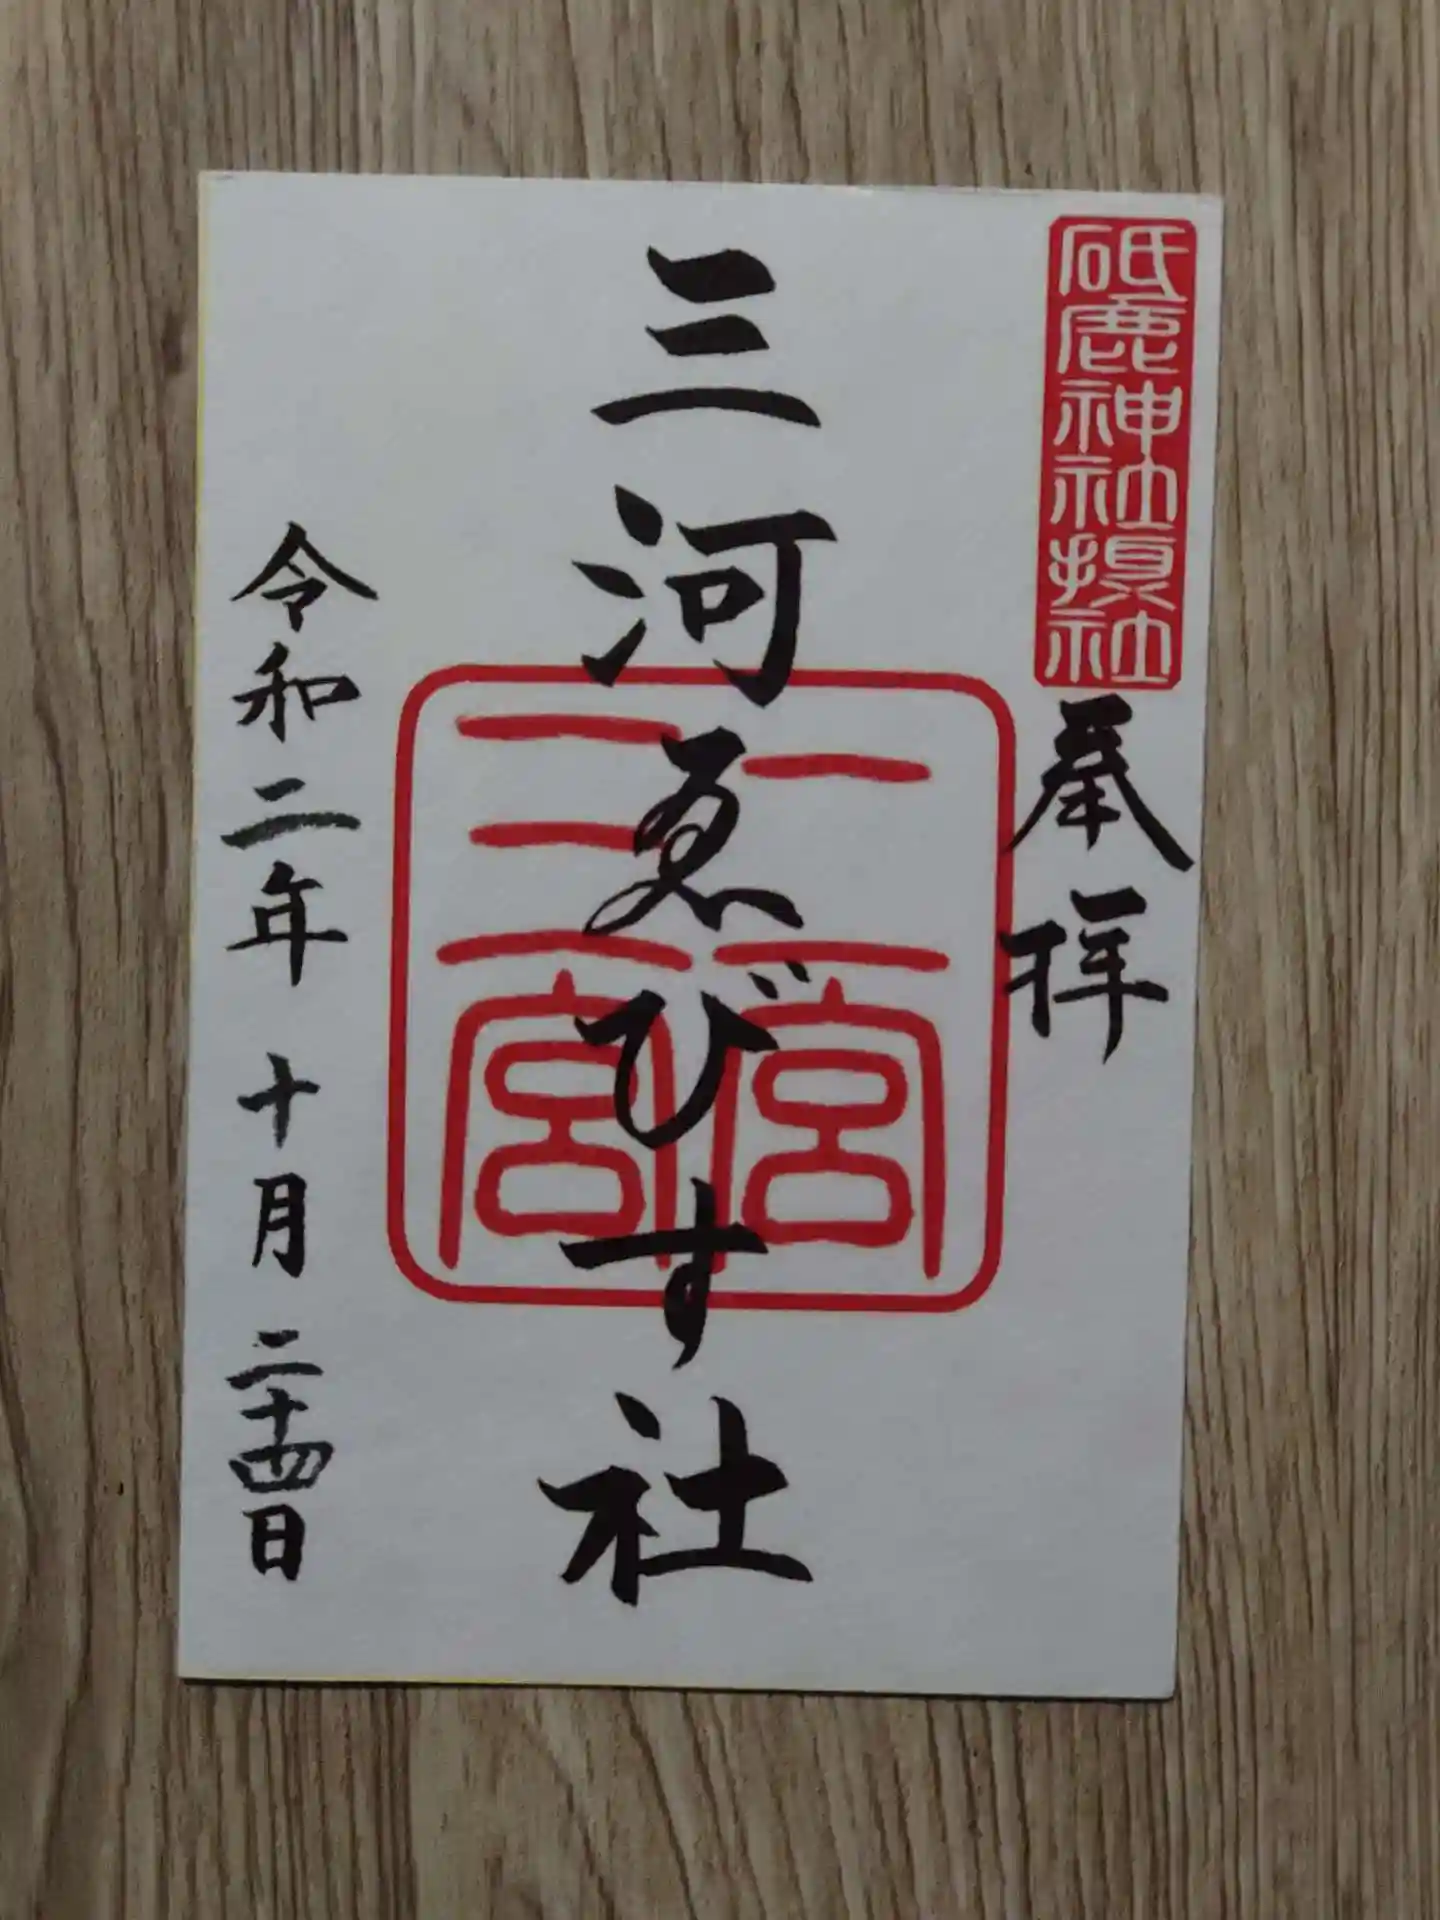 砥鹿神社摂社
奉拝
三河ゑびす社
一宮
二宮
令和二年 十月 二十四日